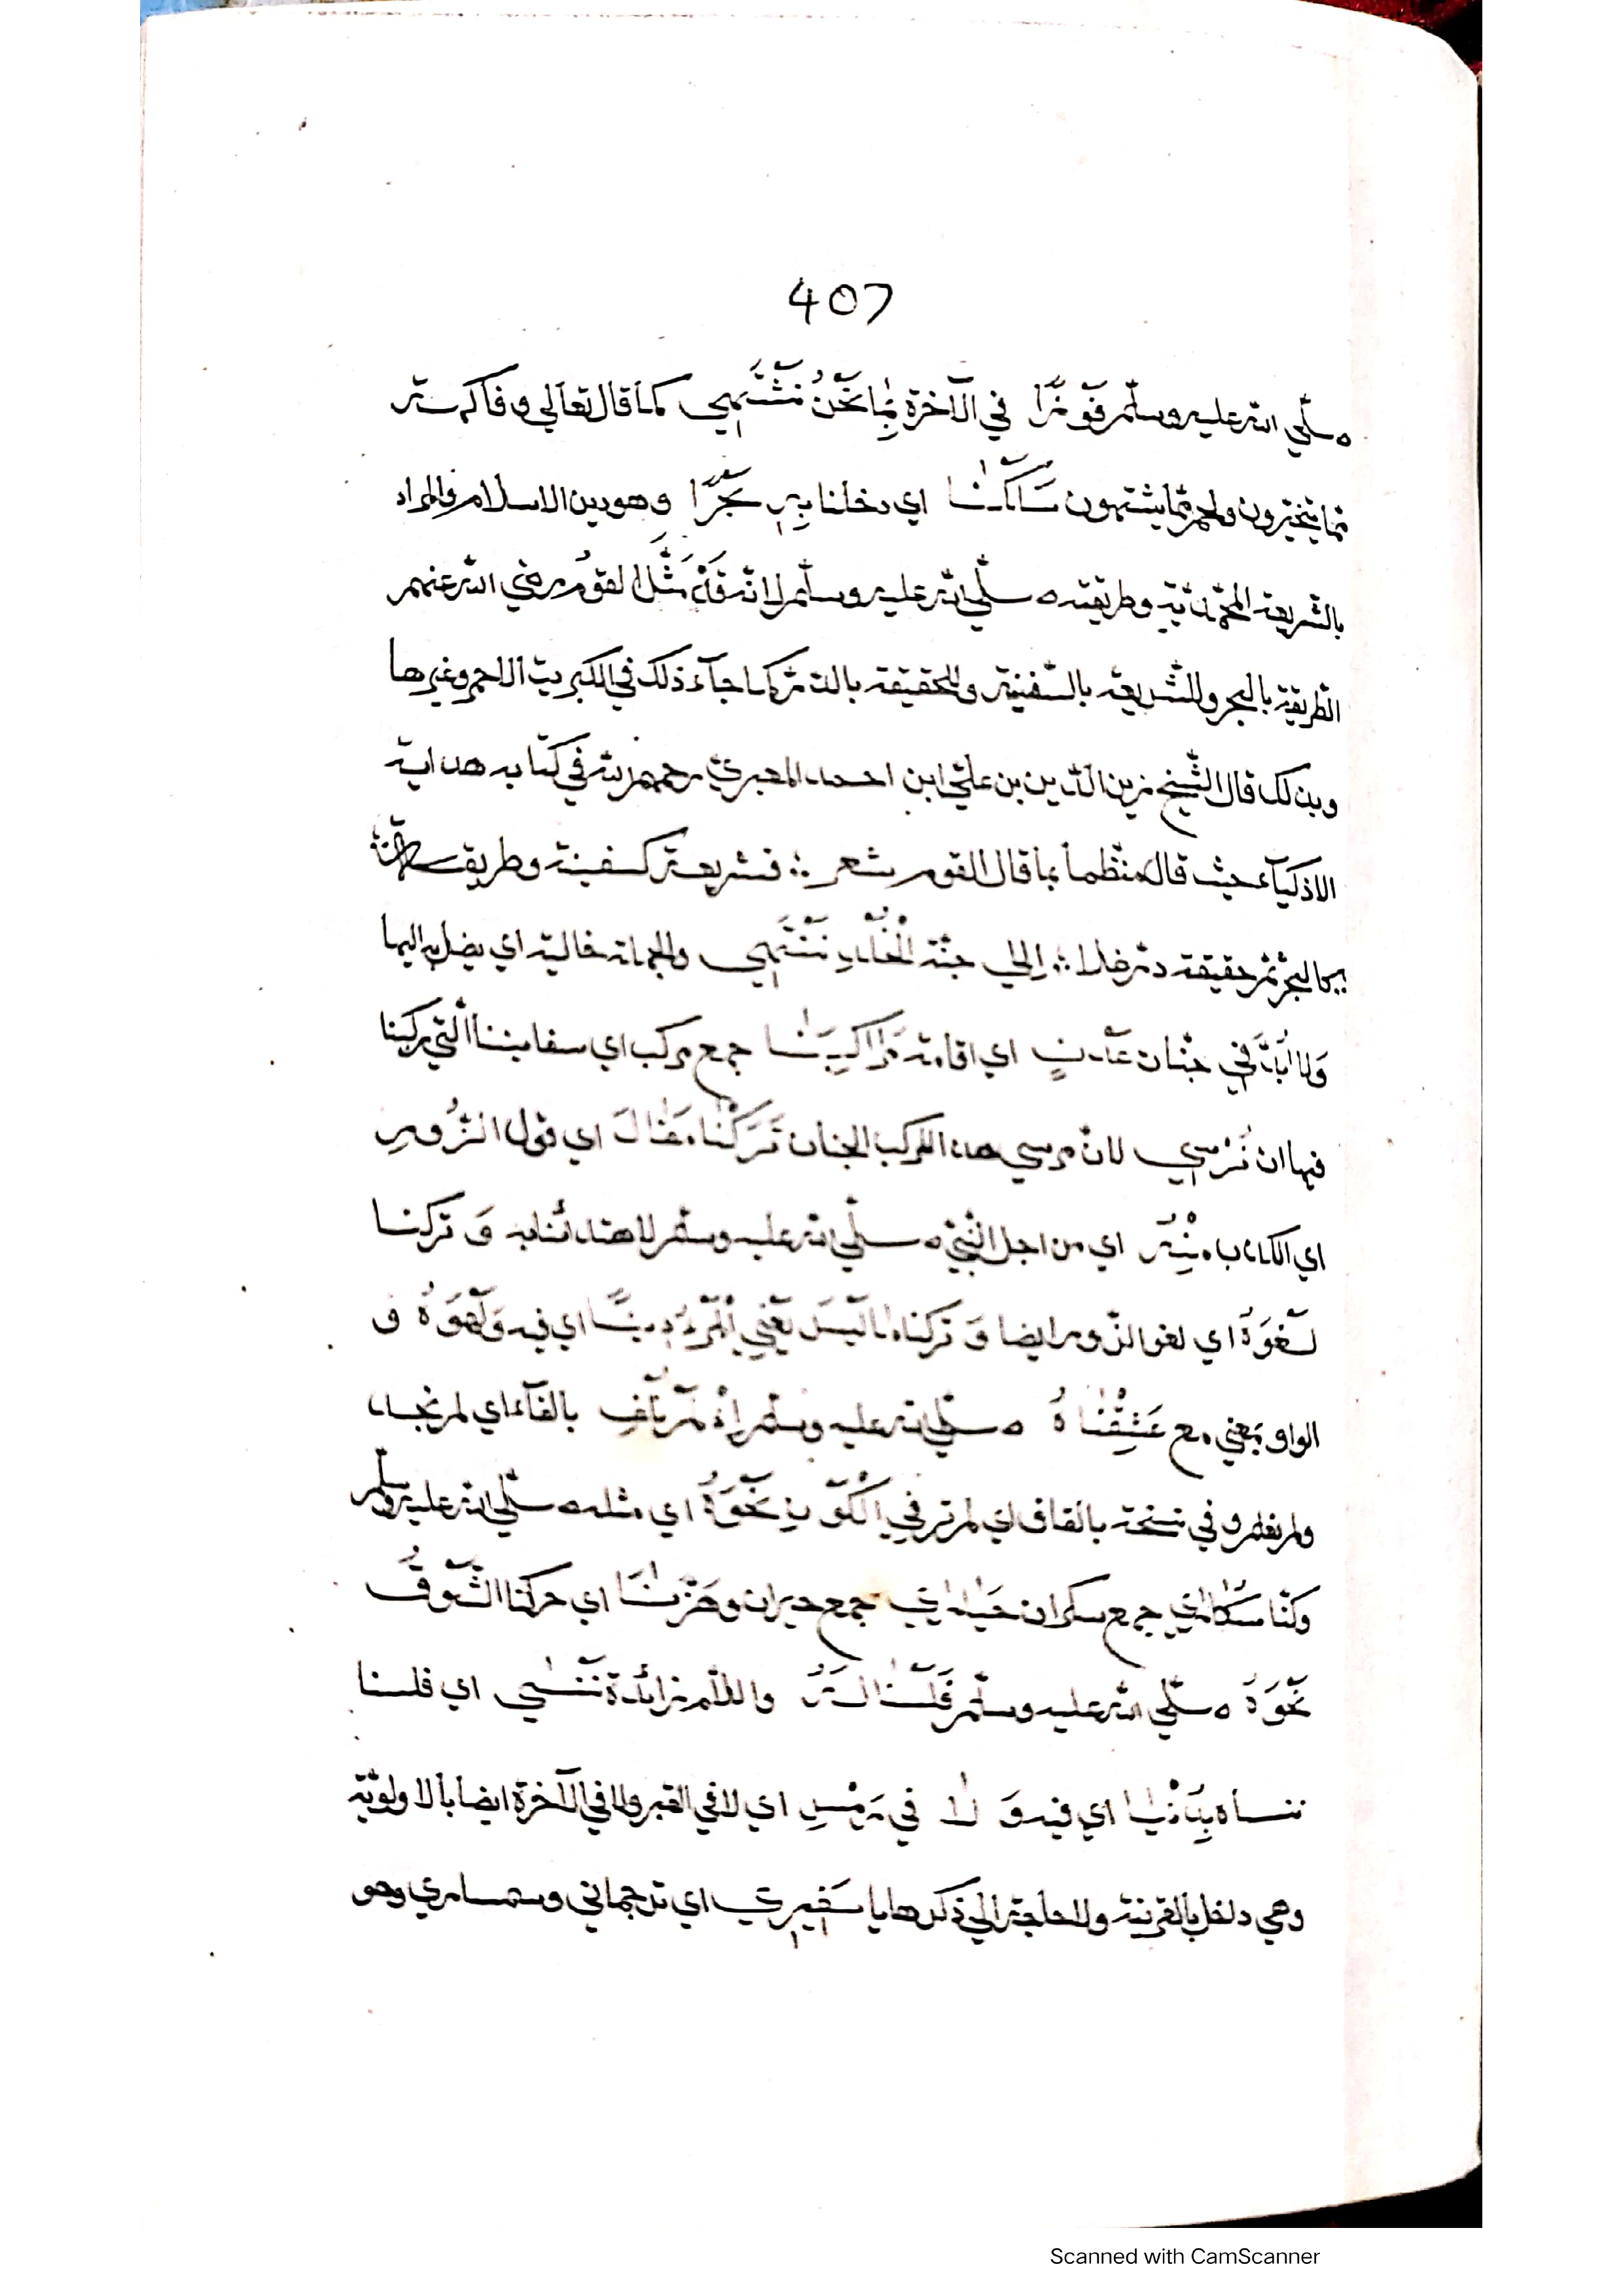 407
صلّي الله عليه وسلّم فَوْزًا في الآخرة بِمَا نَحْنُ نَشْتَهِي كما قال تعالي وفاكهة
ممّا يتخيّرون ولحم ممّا يشتهون سَلَكْنَا اي دخلنا بِهِ بَحْرًا وهو دين الاسلام والمراد
بالشّريعة المحمّديّة وطريقته صلّي الله عليه وسلّم لانّه قَدْ مَثَّلَ القومُ رضي الله عنهم
الطّريقة بالبحر والشّريعة بالسّفينة والحقيقة بالدّرّ كما جآء ذلك في الكبريت الاحمر وغيرها
وبذلك قال الشّيخ زين الدّين بن عليّ ابن احمد المعبريّ رحمهم الله في كتابه هداية
الاذكيآء حيث قال منظّما بما قال القوم شعر ؞ فشريعة كسفينة وطريقة
كالبحر ثمّ حقيقة درّ غلا ؞ اِلَي جنّة الْخُلْدِ نَنْتَهِي والجملة حالية اي يصل به اليها
وَلَا بُدَّ في جنّات عَدْنٍ اي اقامة مَرَاكِبَنَا جمع مركب اي سفايننا الّتي ركبنا
فيها ان نُرْسِي لانّ مرسي هذا المركب الجنان تَرَكْنَا مَقَالَ اي قول الزُّوْرِ
اي الكذب مِنْهُ اي من اجل النّبيّ صلّي الله عليه وسلّم لاهتدائنا به وَ تركنا
لَغْوَهُ اي لغو الزّور ايضا وَ تركنا مَا لَيْسَ يَعْنِي الْمَرْءَ دِينًا اي فيه وَلَهْوَهُ و
الواو بمعني مع عَشِقْنَاهُ صلّي الله عليه وسلّم اِذْ لَمْ نُلْفِ بالفآء اي لم نجد
ولم نعلم وفي نسخة بالقاف اي لم نر فِي الْكَوْنِ نَحْوَهُ اي مثله صلّي الله عليه وسلّم
وكنّا سُكَارَي جمع سكران حَيَارَي جمع حيران وهَزَّنَا اي حركنا الشَّوْقُ
نَحْوَهُ صلّي الله عليه وسلّم فَلَسْنَا لَهُ واللّام زائدة نَنْسَي اي فلسنا
ننساه بِدُنْيَا اي فيه وَ لَا في رَمْسِ اي لا في القبر ولا في الآخرة ايضا بالاولويّة
وهي داخل بالقرينة ولا حاجة الي ذكرها يا سَفِيرِي اي ترجماني وسمساري وهو
Scanned with CamScanner